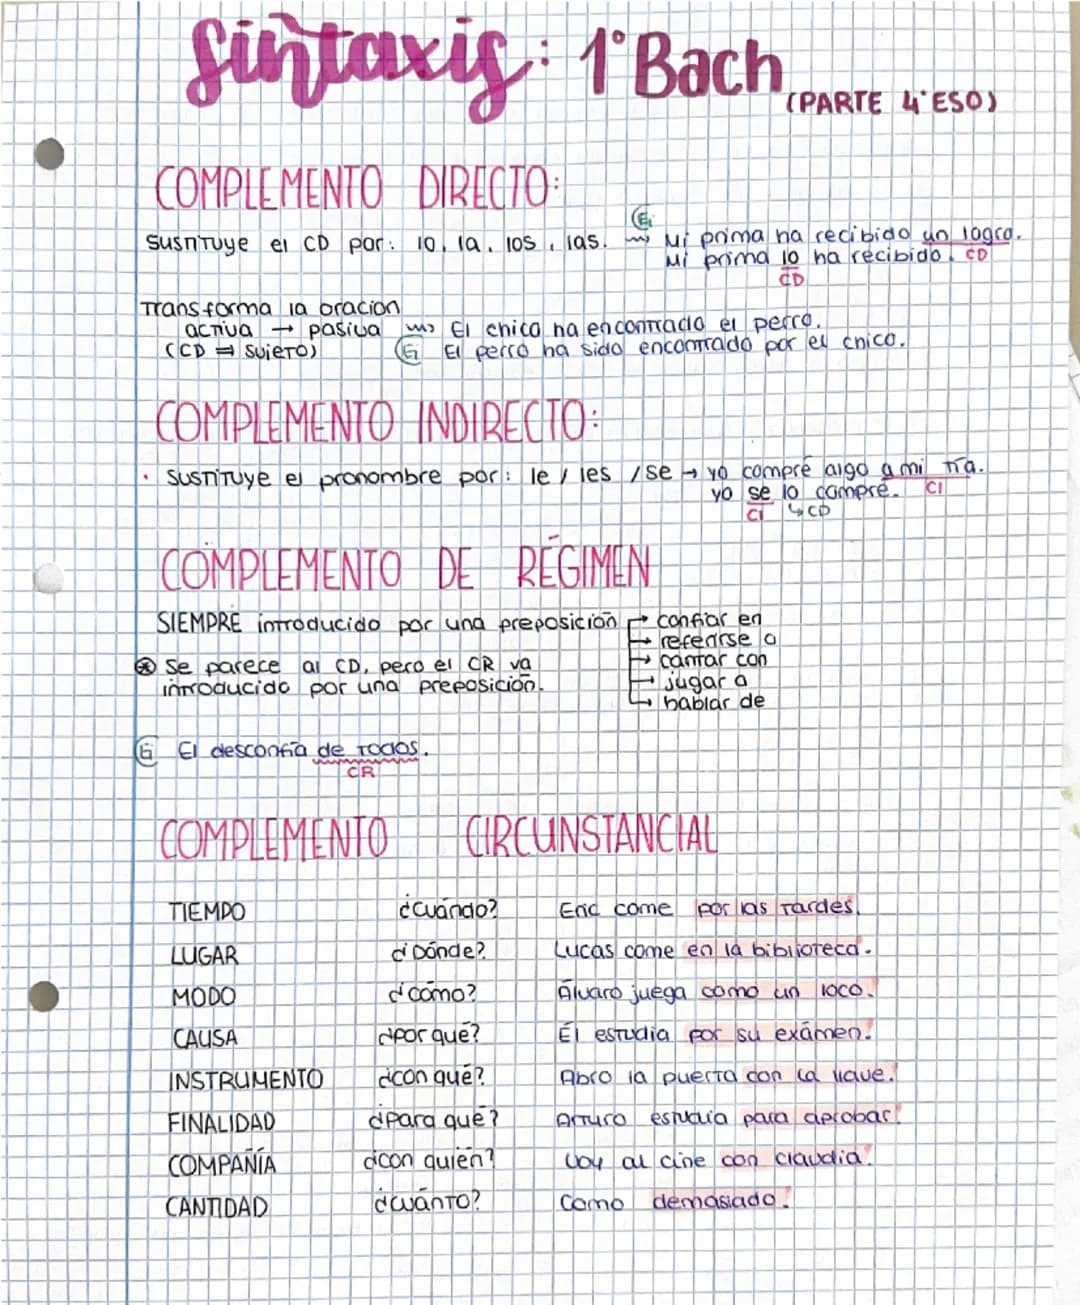 Sintaxis: 1º Bach (PARTE 4º ESO)
COMPLEMENTO DIRECTO:
Sustituye el CD por: lo, la, los, las. Ej Mi prima ha recibido un logro.
CD
Mi prima lo ha recibido.
CD
Transforma la oracion
activa → pasiva El chico ha encontrado el perro.
(CD ⇒ sujeto) Ej El perro ha sido encontrado por el chico.
COMPLEMENTO INDIRECTO:
· Sustituye el pronombre por: le / les / se → yo compré algo a mi tía.
CI
yo se lo compré.
CI ↳CD
COMPLEMENTO DE RÉGIMEN
SIEMPRE introducido por una preposición → confiar en
→ referirse a
→ cantar con
→ jugar a
→ hablar de
⊛ Se parece al CD, pero el CR va
introducido por una preposición.
Ej El desconfía de todos.
CR
COMPLEMENTO CIRCUNSTANCIAL
TIEMPO ¿Cuándo? Eric come por las tardes.
LUGAR ¿Dónde? Lucas come en la biblioteca.
MODO ¿cómo? Álvaro juega como un loco.
CAUSA ¿por qué? Él estudia por su exámen.
INSTRUMENTO ¿con qué? Abro la puerta con la llave.
FINALIDAD ¿Para qué? Arturo estudia para aprobar.
COMPAÑÍA ¿con quién? Voy al cine con Claudia.
CANTIDAD ¿cuánto? Como demasiado.